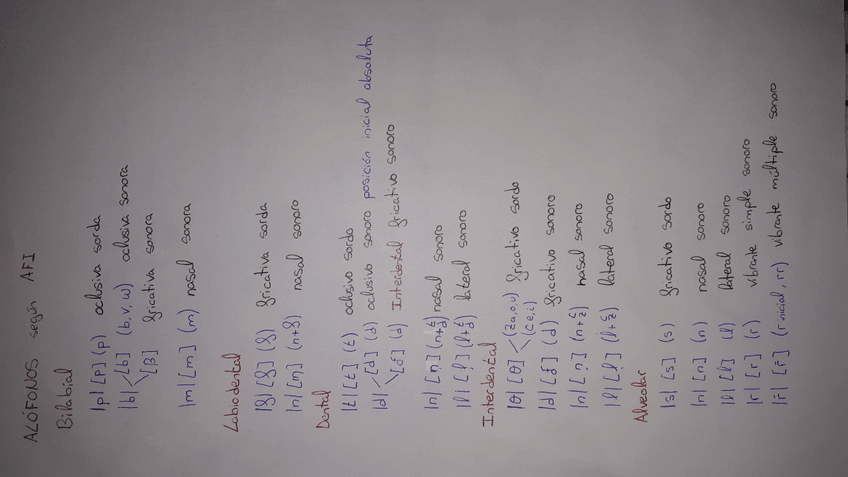 ALÓFONOS según AFI
Bilabial
|p| [p] (p) oclusiva sorda
|b| [b] (b, v, w) oclusiva sonora
[β] fricativa sonora
|m| [m] (m) nasal sonora
Labiodental
|f| [f] (f) fricativa sorda
|n| [ɱ] (n+f) nasal sonoro
Dental
|t| [t] (t) oclusivo sordo
|d| [d] (d) oclusivo sonoro posición inicial absoluta
[ð] (d) Interdental fricativo sonoro
|n| [n̪] (n+t/d) nasal sonoro
|l| [l̪] (l+t/d) lateral sonoro
Interdental
|θ| [θ] (za, o, u) (c e, i) fricativo sordo
|d| [ð] (d) fricativo sonoro
|n| [n̟] (n+c/z) nasal sonoro
|l| [l̟] (l+c/z) lateral sonoro
Alveolar
|s| [s] (s) fricativo sordo
|n| [n] (n) nasal sonoro
|l| [l] (l) lateral sonoro
|r| [r] (r) vibrante simple sonoro
|r̄| [r̄] (r inicial, rr) vibrante múltiple sonoro